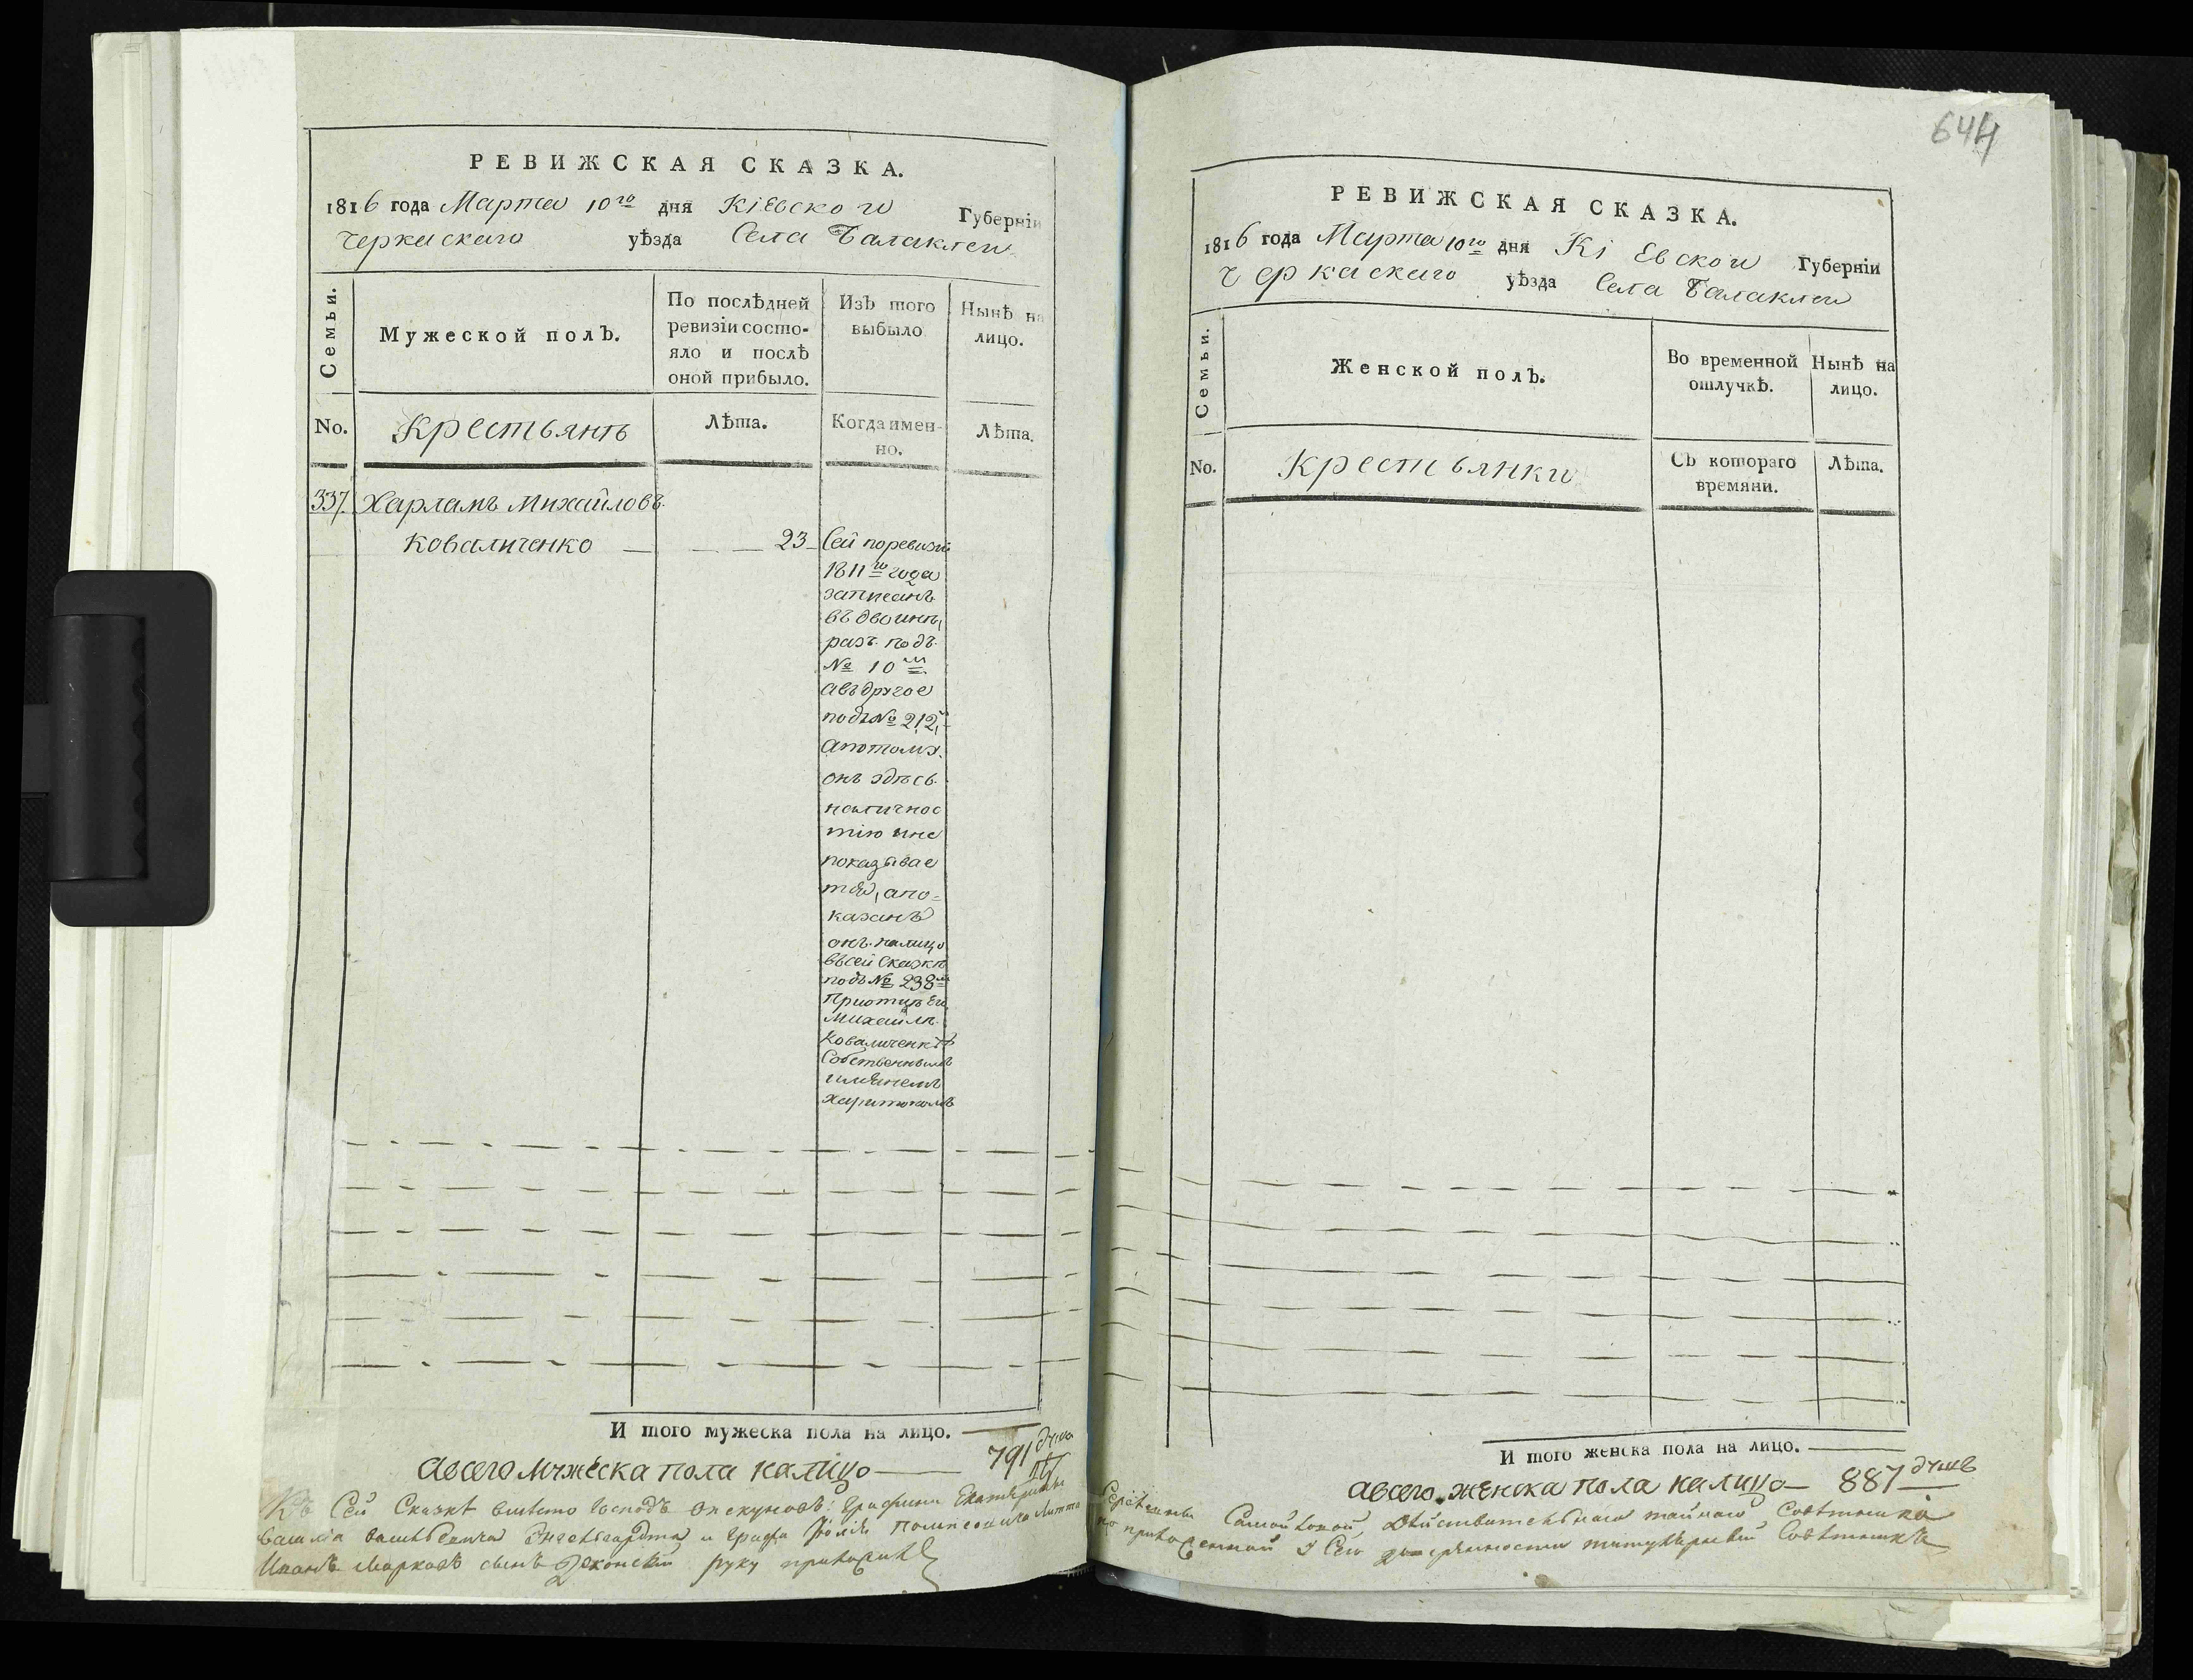 РЕВИЖСКАЯ СКАЗКА.
1816 года Марта 10го дня Кіевской Губерніи
Черкаскаго уѣзда Села Балаклеи
Семьи.
Мужеской полъ.
По послѣдней
ревизіи состо-
яло и послѣ
оной прибыло.
Изъ того
выбыло
Нынѣ на
лицо.
No.
Крестьянъ
Лѣта.
Когда имен-
но.
Лѣта.
337. Харламъ Михайловъ
Коваличенко — 23
Сей поревизіи
1811го года
записанъ
въ двоинѣ,
разъ подъ
№ 10м
авъ другое
подъ № 212,
апотому
онъ здѣсь
наличнос
тію ине
показывае
тся, апо=
казанъ
онъ налицо
въсей Сказкѣ
подъ № 238м
Приотцѣ Его
Михайлѣ
Коваличенкѣ
Собственнымъ
имянемъ
Харитономъ
И того мужеска пола на лицо.
авсего мужеска пола налицо — 791 душа
Къ Сей Сказкѣ вмѣсто Господъ Опекуновъ: Графини Екатерины
Василіа Васильевича Энгельгардта и Графа Юлія Помпеевича Литта
Иванъ Марковъ сынъ руку приложилъ
644
РЕВИЖСКАЯ СКАЗКА.
1816 года Марта 10го дня Кіевской Губерніи
Черкаскаго уѣзда Села Балаклеи
Семьи.
Женской полъ.
Во временной
отлучкѣ.
Нынѣ на
лицо.
No.
Крестьянки
Съ котораго
времяни.
Лѣта.
И того женска пола на лицо.
авсего женска пола налицо — 887 душъ
Самойловой, Дѣйствительнаго тайнаго Совѣтника
по приложенной у Сего довѣренности титулярный Совѣтникъ